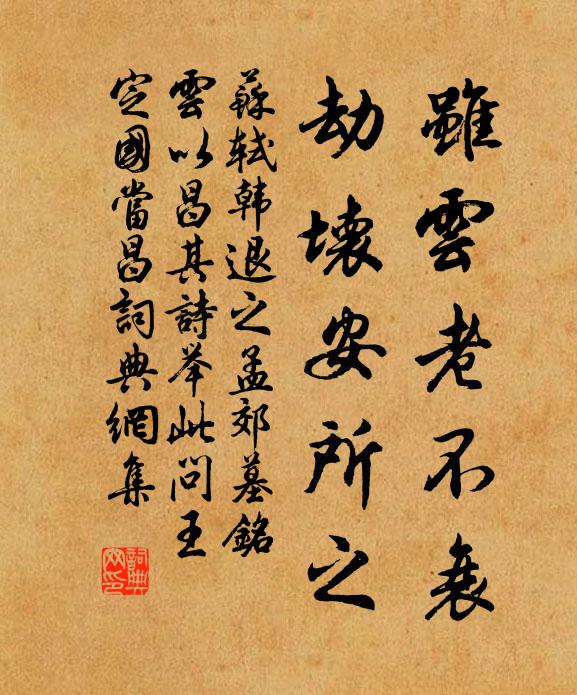 雖雲老不衰
劫壞安所之
蘇軾韓退之孟郊墓銘
雲以昌其詩举此問王
定國當昌詞典網集
詞典网印